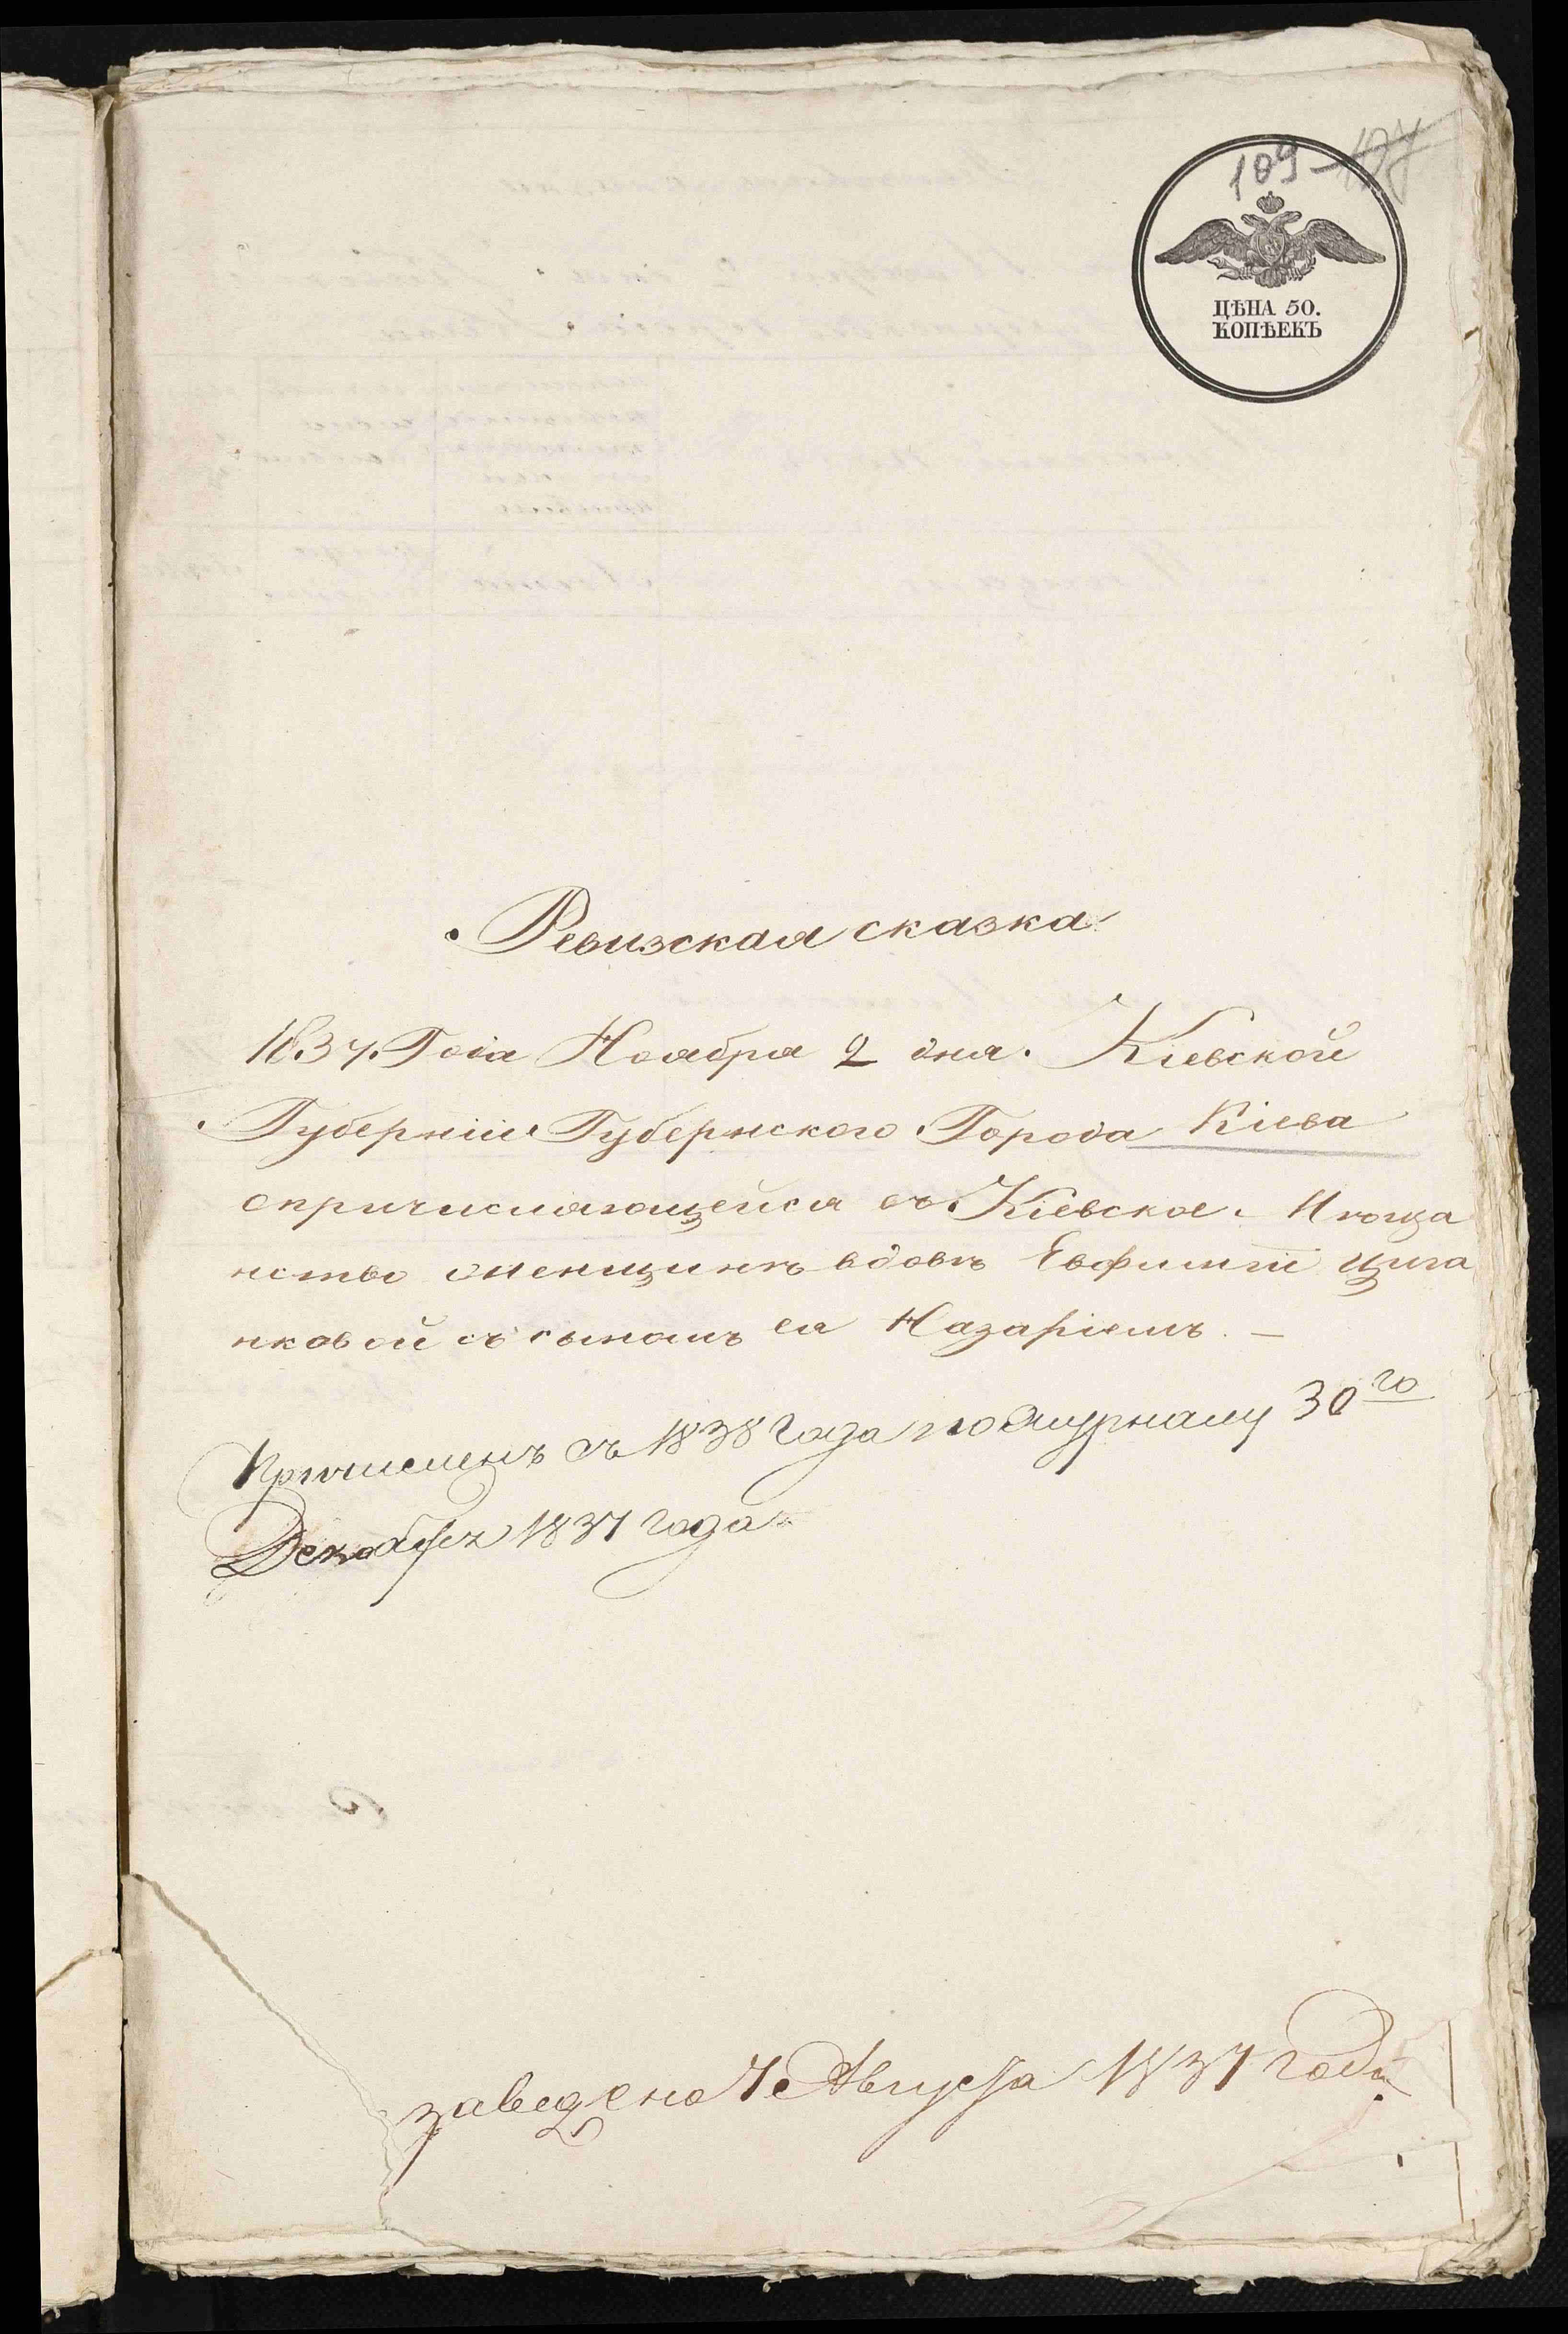 109
ЦѢНА 50.
КОПѢЕКЪ
Ревизская сказка
1837. Года Ноября 2 дня. Кіевской
Губерніи Губернского Города Кіева
опричисляющейся въ Кіевское. Мѣща
нство женщинѣ вдовѣ Евфиміи Цига
нковой съ сыномъ ея Назаріемъ. —
Причисленъ съ 1838 Года по Журналу 30го
Декабря 1837 года
заведено 7 Августа 1837 года